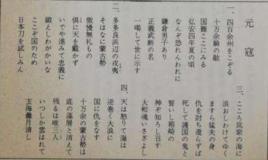 元寇
一、四百余州をこぞる
十万余騎の敵
国難ここにみる
弘安四年夏の頃
なんぞ怖れんわれに
鎌倉男子あり
正義武断の名
一喝して世に示す
二、多々良浜辺の戎夷
そはなに蒙古勢
傲慢無礼もの
倶に天を戴かず
いでや進みて忠義に
鍛えしわがかいな
ここぞ国のため
日本刀を試しみん
三、こころ筑紫の海に
浪おしわけてゆく
ますら猛夫の身
仇を討ち還らずば
死して護国の鬼と
誓いし箱崎の
神ぞ知ろし召す
大和魂いさぎよし
四、天は怒りて海は
逆巻く大浪に
国に仇をなす
十余万の蒙古勢は
底の藻屑と消えて
残るは唯三人
いつしか雲はれて
玄海灘月清し